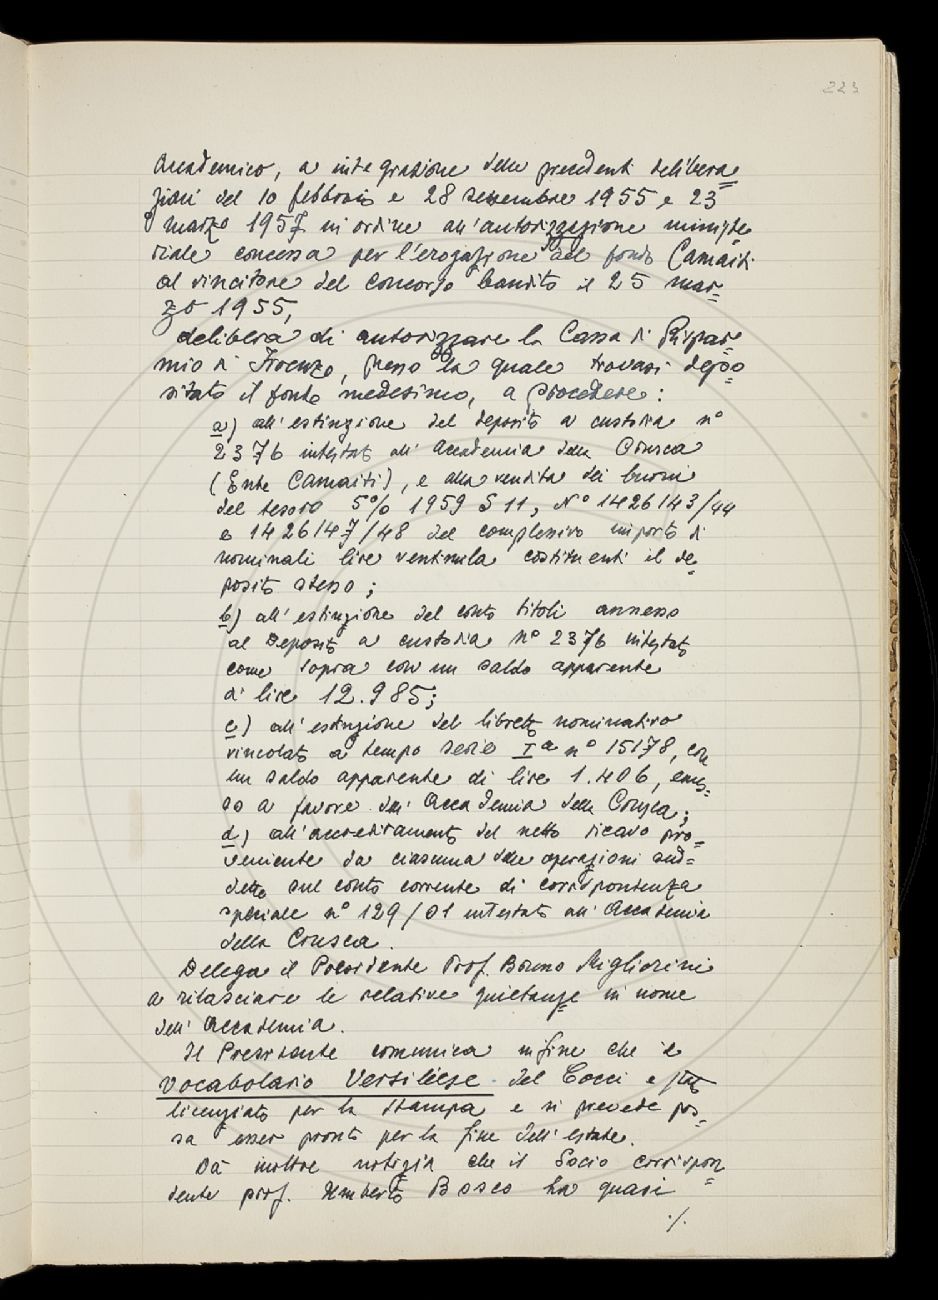 223
Accademico, a integrazione delle precedenti delibera=
zioni del 10 febbraio e 28 settembre 1955 e 23
marzo 1957 in ordine all'autorizzazione ministe=
riale concessa per l'erogazione del fondo Camaiti
al vincitore del concorso bandito il 25 mar=
zo 1955,
delibera di autorizzare la Cassa di Rispar=
mio di Firenze, presso la quale trovasi depo=
sitato il fondo medesimo, a procedere:
a) all'estinzione del deposito a custodia n°
2376 intestato all'Accademia della Crusca
(Ente Camaiti), e alla vendita dei buoni
del tesoro 5% 1959 S 11, N° 1426143/44
e 1426147/48 del complessivo importo di
nominali lire ventimila costituenti il de=
posito stesso;
b) all'estinzione del conto titoli annesso
al Deposito a custodia n° 2376 intestato
come sopra con un saldo apparente
di lire 12.985;
c) all'estinzione del libretto nominativo
vincolato a tempo serie Iª n° 15178, con
un saldo apparente di lire 1.406, emes=
so a favore dell'Accademia della Crusca;
d) all'accreditamento del netto ricavo pro=
veniente da ciascuna delle operazioni sud=
dette sul conto corrente di corrispondenza
speciale n° 129/01 intestato all'Accademia
della Crusca.
Delega il Presidente Prof. Bruno Migliorini
a rilasciare le relative quietanze in nome
dell'Accademia.
Il Presidente comunica infine che il
Vocabolario Versiliese del Cocci è stato
licenziato per la stampa e si prevede pos=
sa esser pronto per la fine dell'estate.
Dà inoltre notizia che il Socio corrispon=
dente prof. Umberto Bosco ha quasi
./.